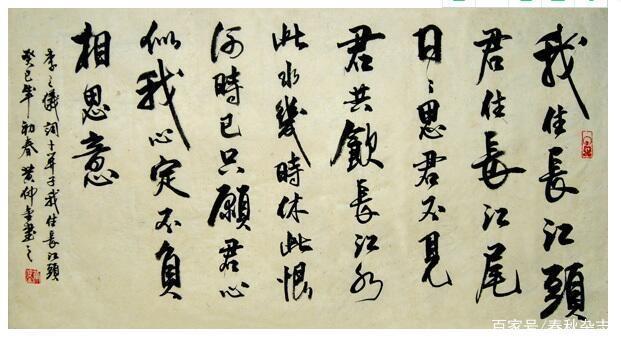 我住長江頭
君住長江尾
日〻思君不見
君共飲長江水
此水幾時休此恨
何時已只願君心
似我心定不負
相思意
李之儀詞卜算子我住長江頭
癸巳年初春黃仲書之
百家号/春秋杂志